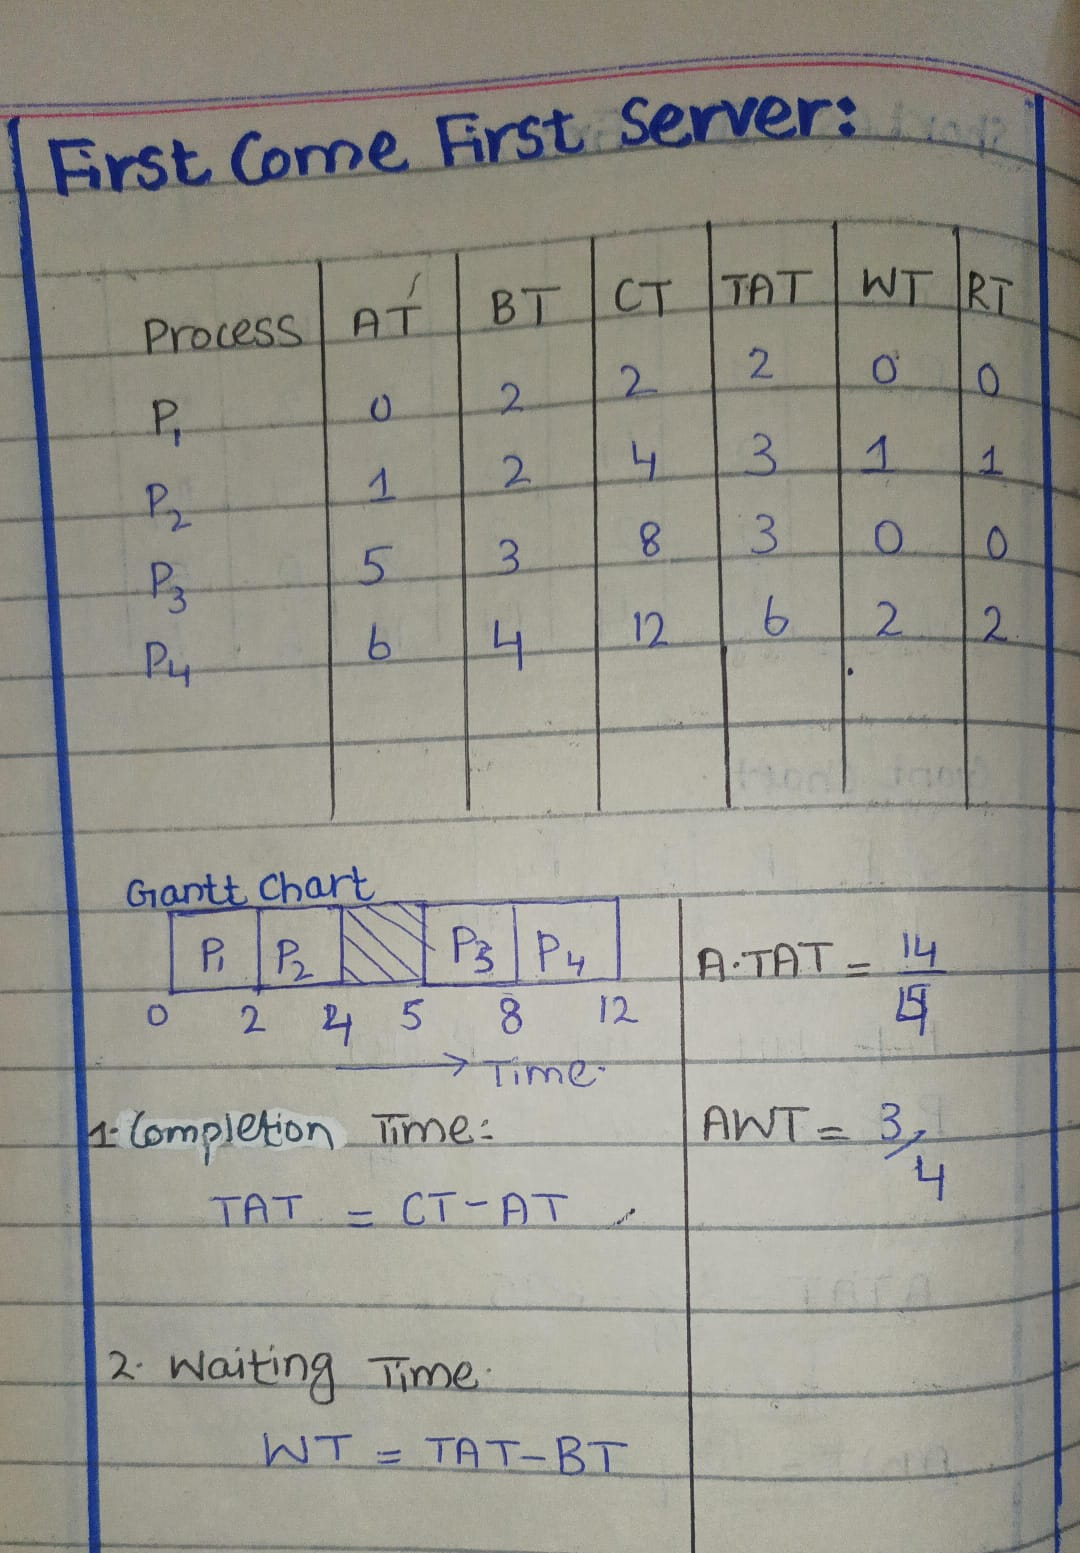 First Come First Server:
Process AT BT CT TAT WT RT
P1 0 2 2 2 0 0
P2 1 2 4 3 1 1
P3 5 3 8 3 0 0
P4 6 4 12 6 2 2
Gantt Chart
P1 P2 P3 P4
0 2 4 5 8 12
→ Time
A.TAT = 14/4
1. Completion Time:
AWT = 3/4
TAT = CT-AT
2. Waiting Time
WT = TAT-BT